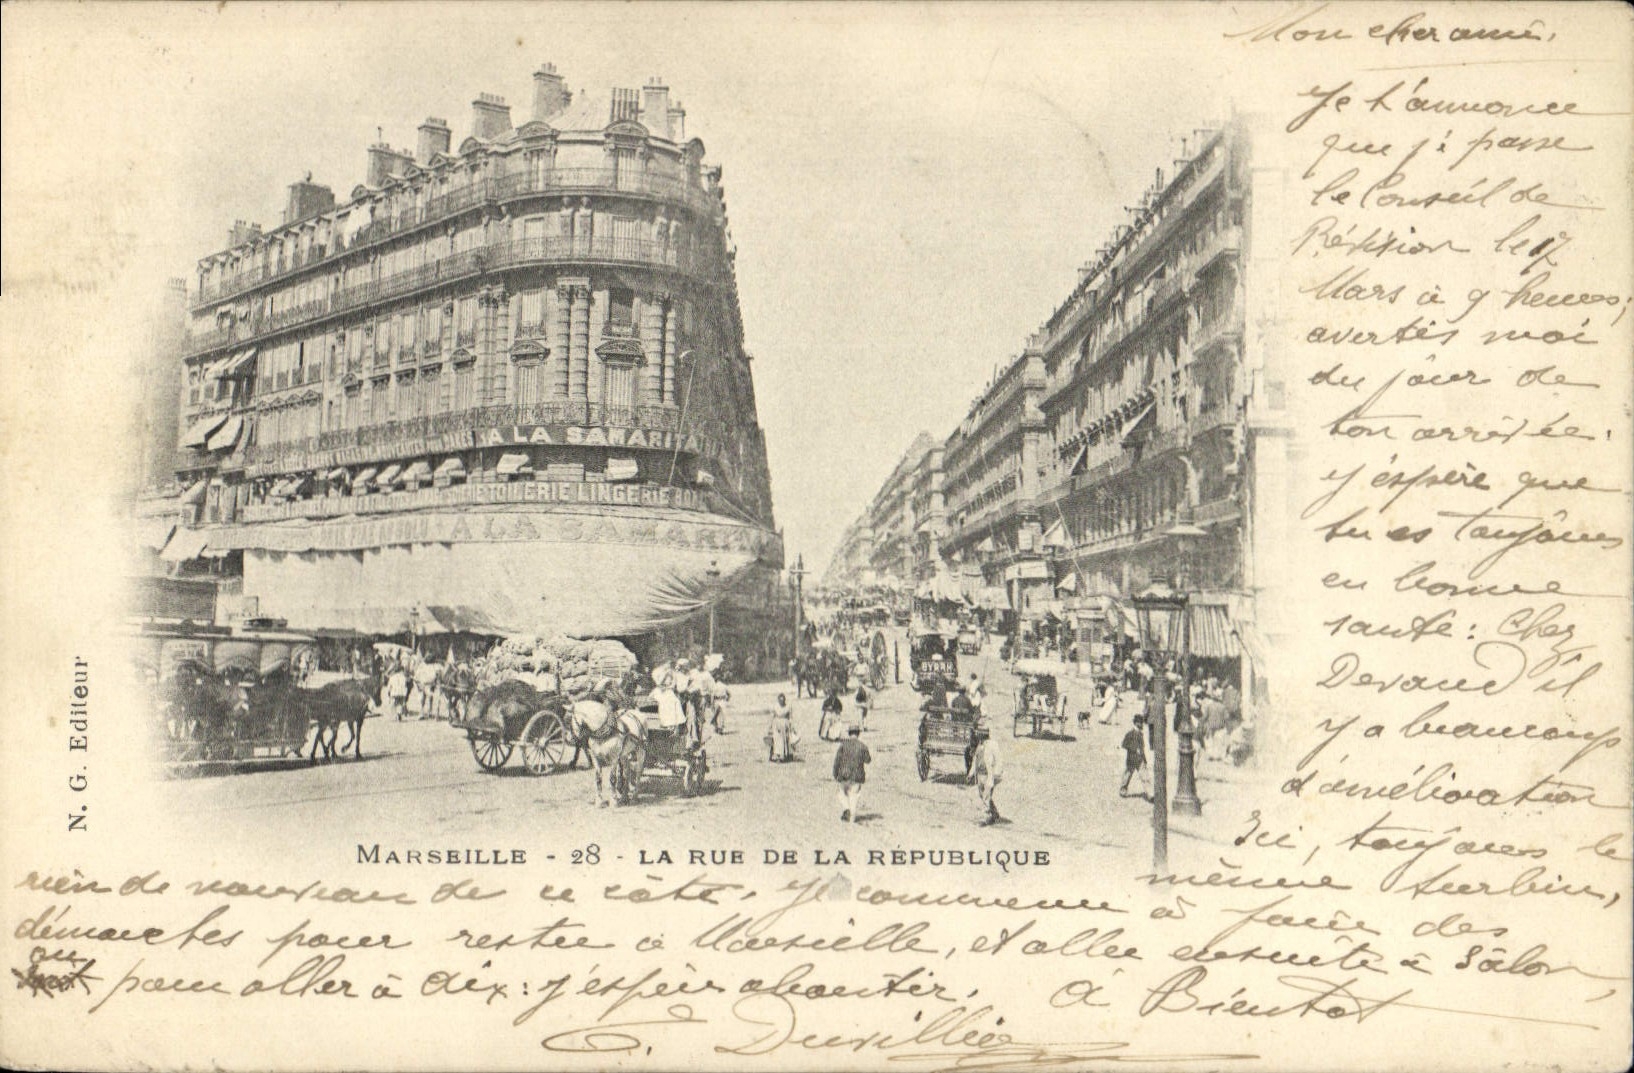 Mon cher ami,
Je t'annonce
que j'i passe
le Conseil de
Révision le 17
Mars à 9 heures;
avertis moi
du jour de
ton arrivée.
J'espère que
tu es toujours
en bonne
santé: Chez
Devaud il
y a beaucoup
d'amélioration
Ici, toujours le
même turbin,
rien de nouveau de ce côté. Je commence à faire des
démarches pour rester à Marseille, et aller ensuite à Salon,
ou
pour aller à Aix: j'espère aboutir. A Bientot
E. Duvillier
A LA SAMARITAINE
LINGERIE
A LA SAMARI
BYRRH
N. G. Editeur
MARSEILLE - 28 - LA RUE DE LA RÉPUBLIQUE